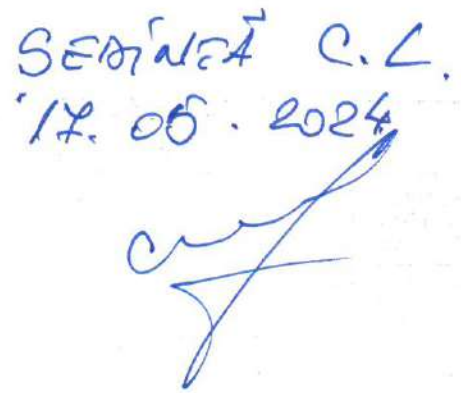 SEDINȚĂ C.L.
17.05.2024